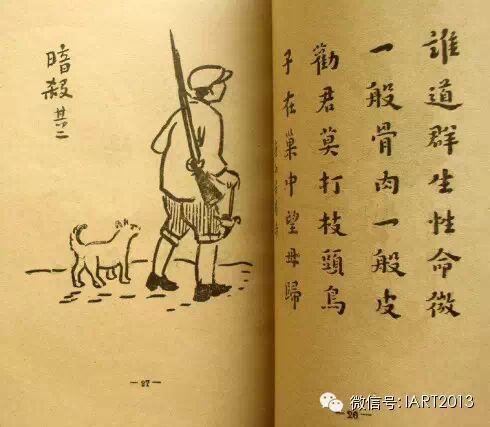 誰道群生性命微
一般骨肉一般皮
勸君莫打枝頭鳥
子在巢中望母歸
—26—
暗殺 其二
—27—
微信号: IART2013